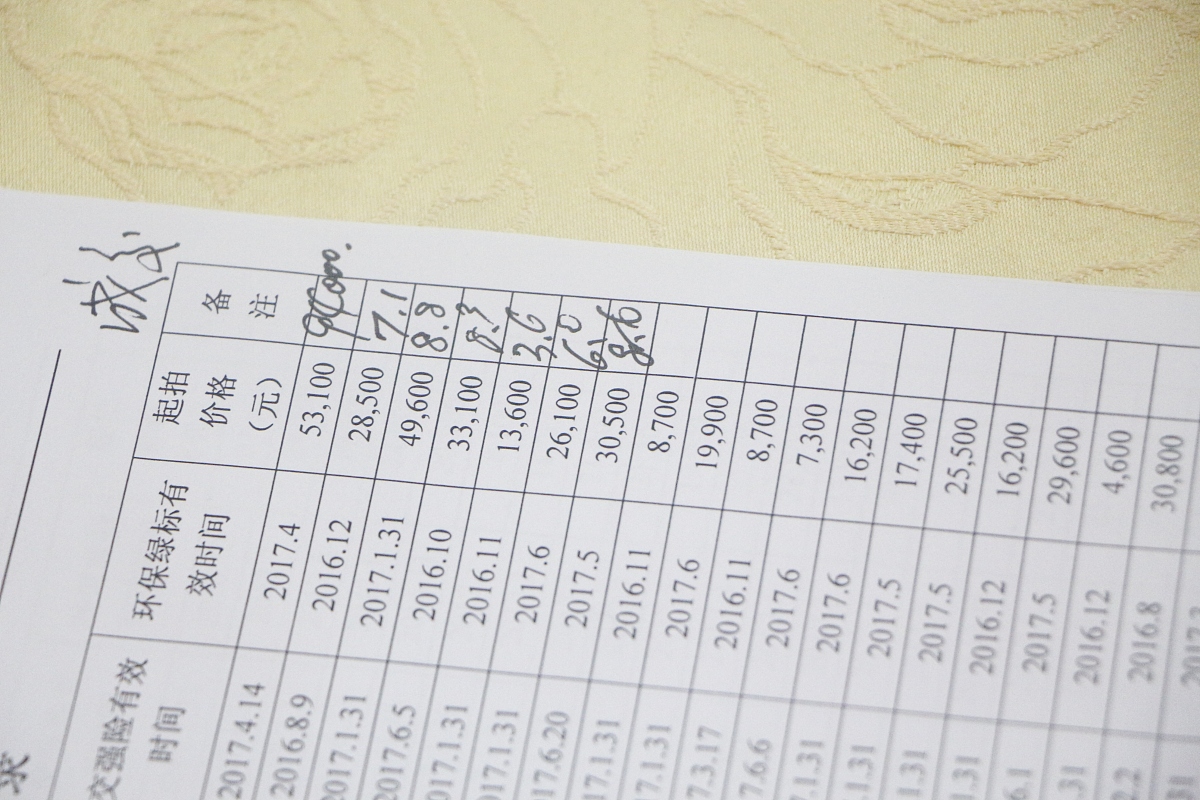 求
成交
交强险有效时间 环保绿标有效时间 起拍价格（元） 备注
2017.4.14 2017.4 53,100
2016.8.9 2016.12 28,500 7.1
2017.1.31 2017.1.31 49,600 8.8
2017.6.5 2016.10 33,100 8.3
2017.1.31 2016.11 13,600 3.6
017.1.31 2017.6 26,100 6.0
17.6.20 2017.5 30,500 8.6
17.1.31 2016.11 8,700
7.1.31 2017.6 19,900
7.3.17 2016.11 8,700
7.6.6 2017.6 7,300
.1.31 2017.6 16,200
1.31 2017.5 17,400
1.31 2017.5 25,500
.31 2016.12 16,200
6.1 2017.5 29,600
31 2016.12 4,600
2.2 2016.8 30,800
31 2017